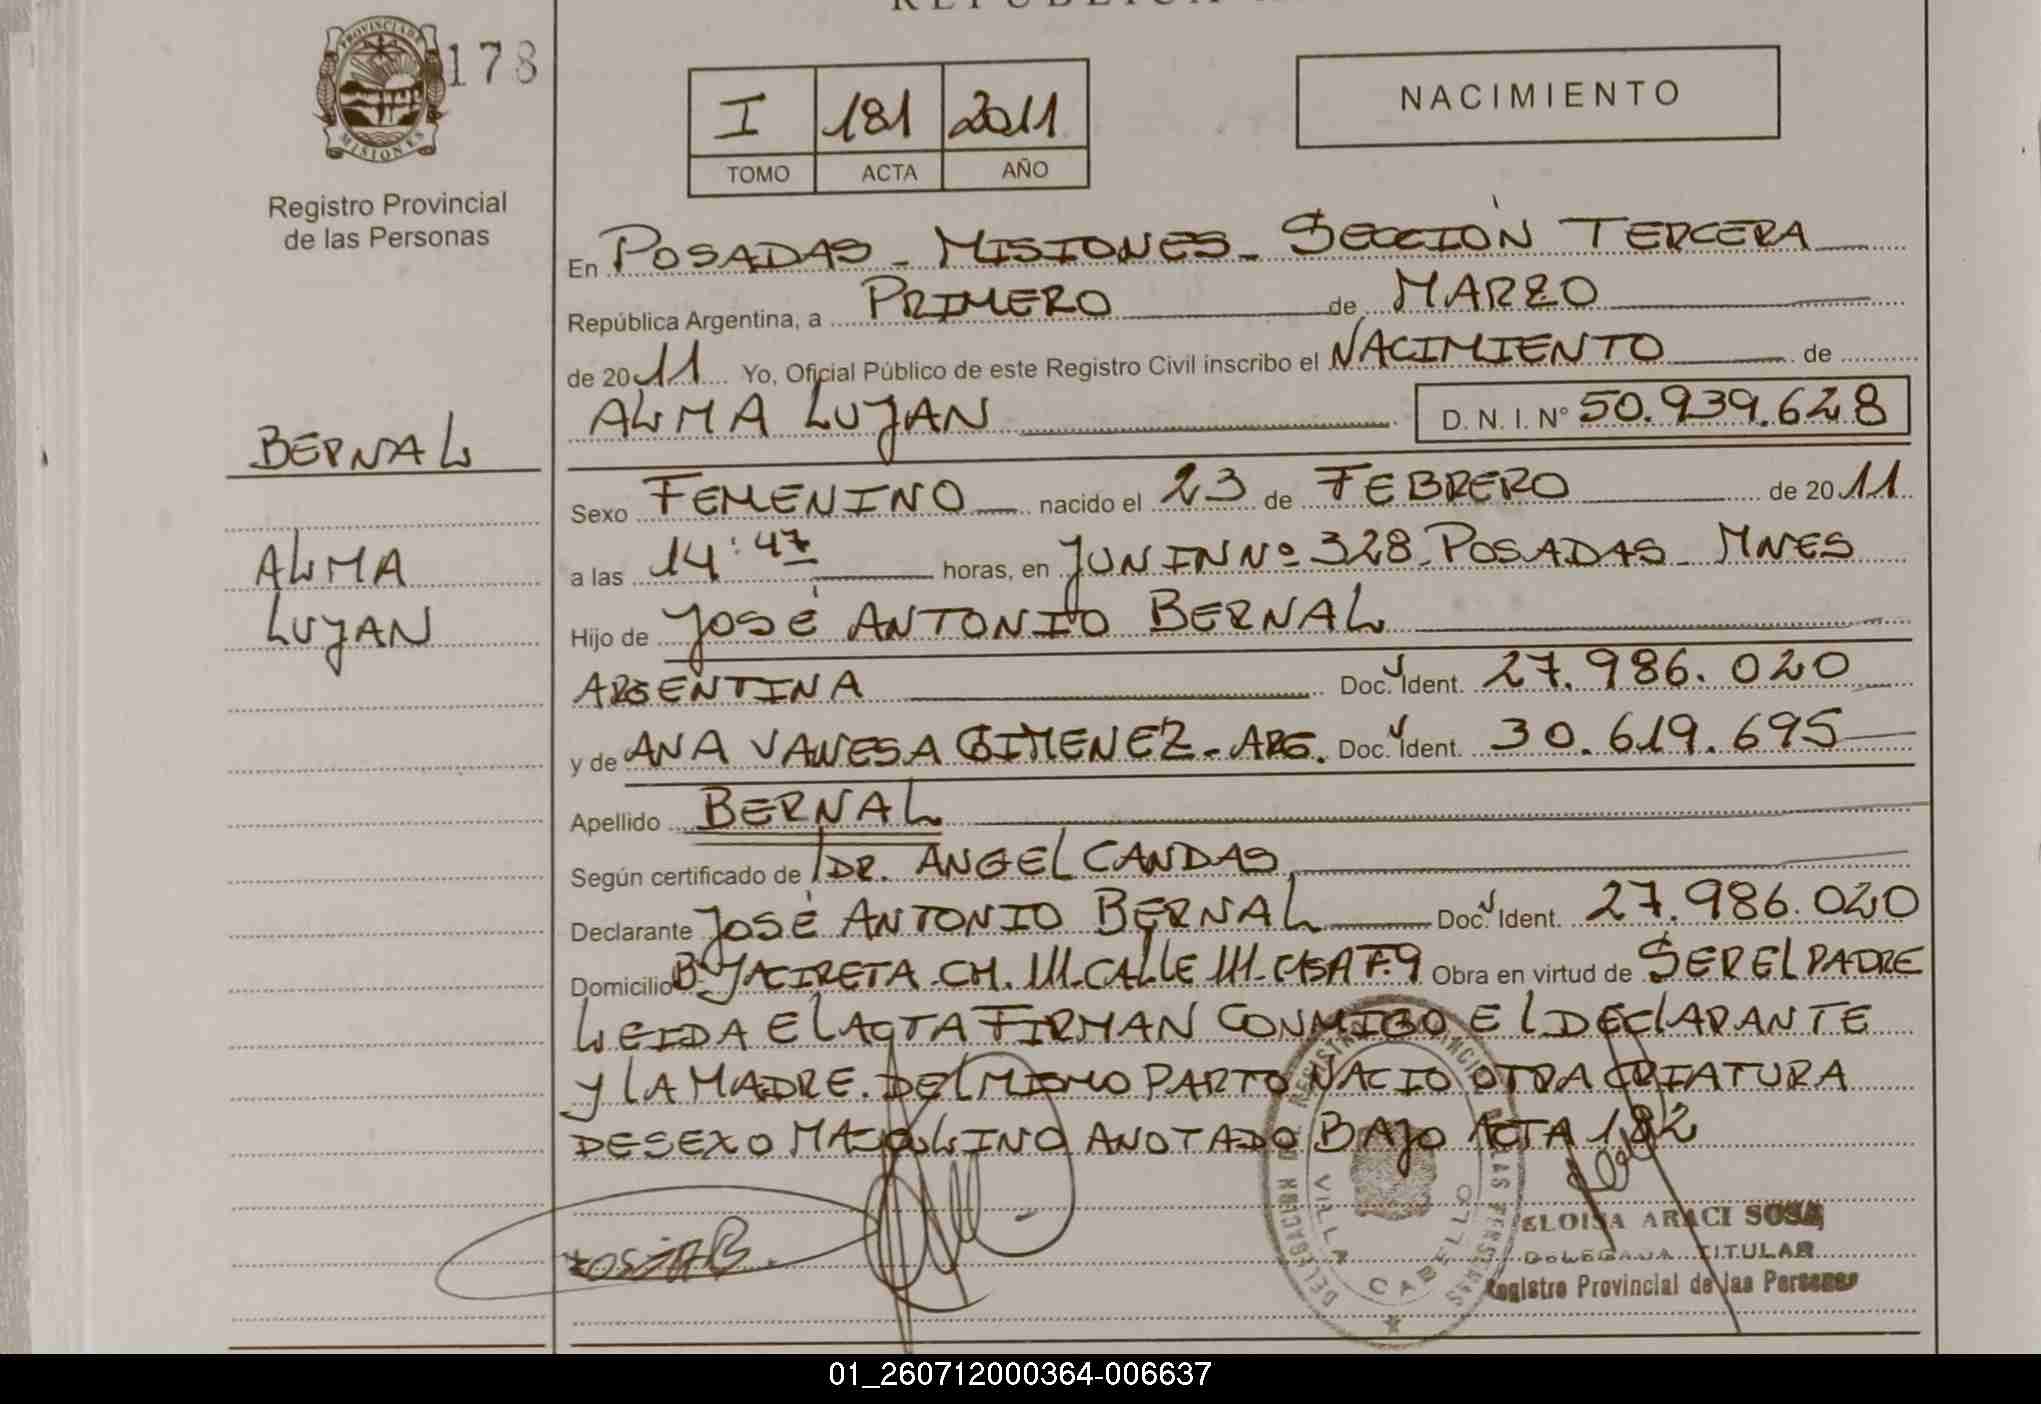 PROVINCIA DE
MISIONES
178
Registro Provincial
de las Personas
BERNAL
ALMA
LUJAN
I 181 2011
TOMO ACTA AÑO
NACIMIENTO
En POSADAS - MISIONES - SECCIÓN TERCERA
República Argentina, a PRIMERO de MARZO
de 2011 Yo, Oficial Público de este Registro Civil inscribo el NACIMIENTO de
ALMA LUJAN D. N. I. N° 50.939.628
Sexo FEMENINO nacido el 23 de FEBRERO de 2011
a las 14:47 horas, en JUNIN Nº 328. POSADAS - MNES
Hijo de JOSÉ ANTONIO BERNAL
ARGENTINA Doc. Ident. 27.986.020
y de ANA VANESA GIMENEZ - ARG. Doc. Ident. 30.619.695
Apellido BERNAL
Según certificado de DR. ANGEL CANDAS
Declarante JOSÉ ANTONIO BERNAL Doc. Ident. 27.986.020
Domicilio Bº YACIRETA - CH. 111 - CALLE 111 - CASA F.9 Obra en virtud de SER EL PADRE
LEIDA EL ACTA FIRMAN CONMIGO EL DECLARANTE
Y LA MADRE. DEL MISMO PARTO NACIO OTRA CRIATURA
DE SEXO MASCULINO ANOTADO BAJO ACTA 182
VILLA CABELLO
ELOISA ARACI SOSA
DELEGADA TITULAR
Registro Provincial de las Personas
01_260712000364-006637